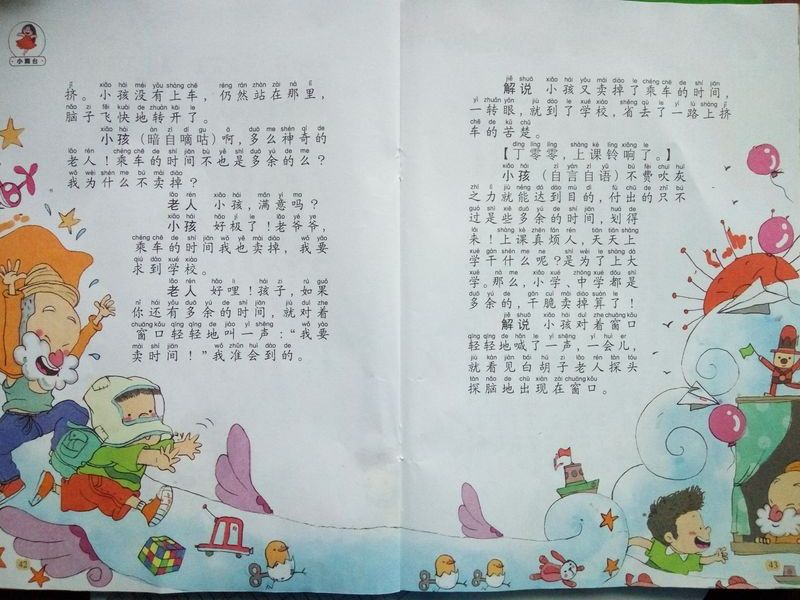 小舞台
挤。小孩没有上车，仍然站在那里，
脑子飞快地转开了。
小孩（暗自嘀咕）啊，多么神奇的
老人！乘车的时间不也是多余的么？
我为什么不卖掉？
老人 小孩，满意吗？
小孩 好极了！老爷爷，
乘车的时间我也卖掉，我要
求到学校。
老人 好哩！孩子，如果
你还有多余的时间，就对着
窗口轻轻地叫一声：“我要
卖时间！”我准会到的。
42
解说 小孩又卖掉了乘车的时间，
一转眼，就到了学校，省去了一路上挤
车的苦楚。
【丁零零，上课铃响了。】
小孩（自言自语）不费吹灰
之力就能达到目的，付出的只不
过是些多余的时间，划得
来！上课真烦人，天天上
学干什么呢？是为了上大
学。那么，小学、中学都是
多余的，干脆卖掉算了！
解说 小孩对着窗口
轻轻地喊了一声，一会儿，
就看见白胡子老人探头
探脑地出现在窗口。
43